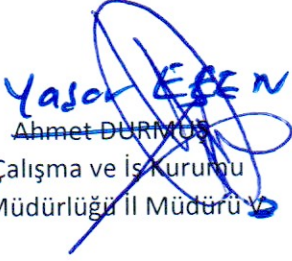 Yaşar ESEN
Ahmet DURMUŞ
Çalışma ve İş Kurumu
Müdürlüğü İl Müdürü V.